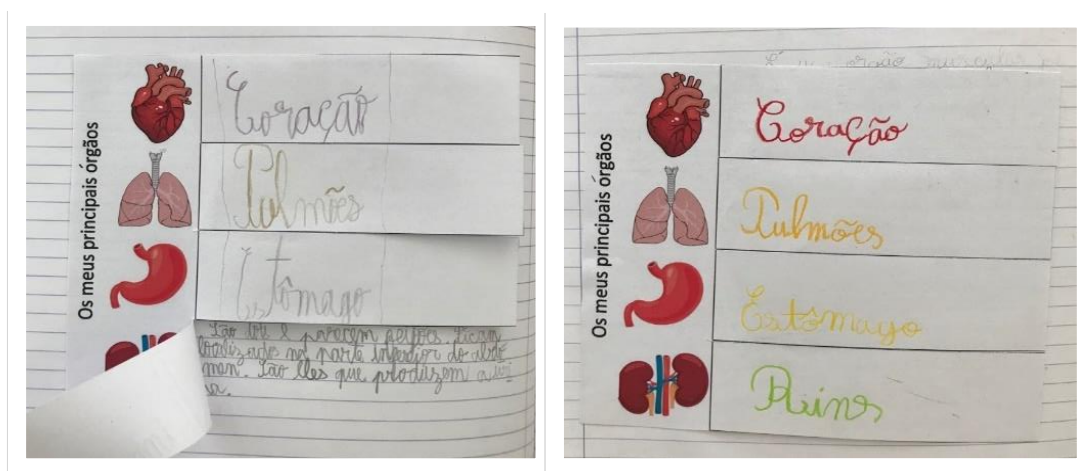 Os meus principais órgãos
Coração
Pulmões
Estômago
São dois e parecem feijões. Ficam
localizado na parte inferior do abdó
men. São eles que produzem a uri
na.
Os meus principais órgãos
órgão muscular
Coração
Pulmões
Estômago
Rins